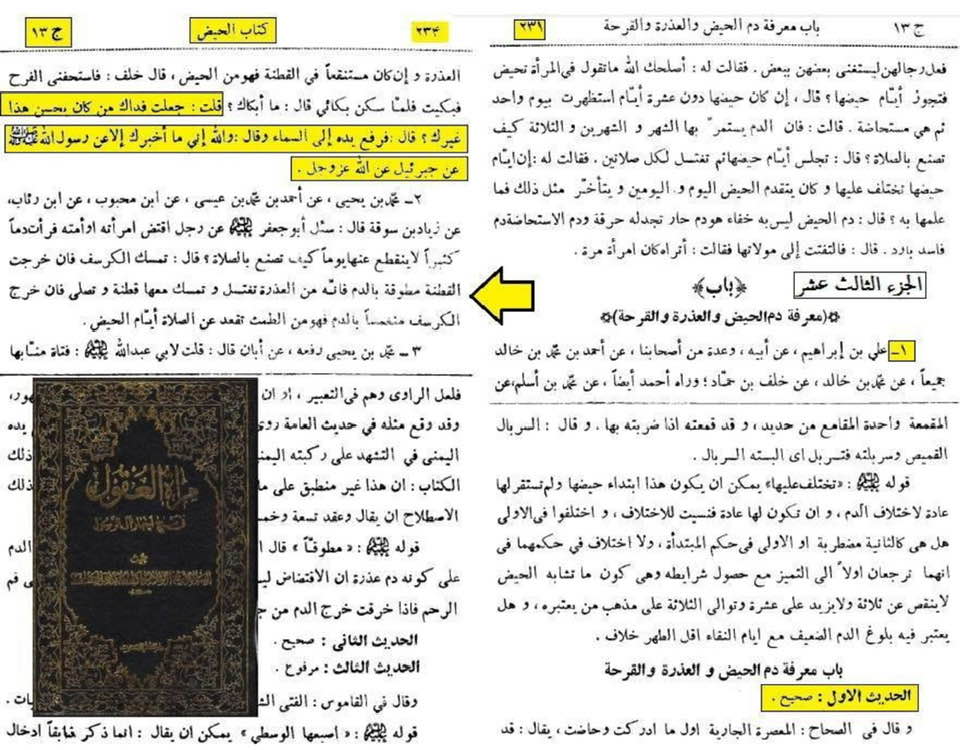 ج ١٣ باب معرفة دم الحيض والعذرة والقرحة ٢٣١
فعل رجالهن ليستغنى بعضهن ببعض . فقالت له : أصلحك الله ماتقول في المرأة تحيض
فتجوز أيام حيضها ؟ قال ، إن كان حيضها دون عشرة أيام استظهرت بيوم واحد
ثم هي مستحاضة . قالت : فان الدم يستمر بها الشهر و الشهرين و الثلاثة كيف
تصنع بالصلاة ؟ قال : تجلس أيام حيضها ثم تغتسل لكل صلاتين . فقالت له : إن أيام
حيضها تختلف عليها و كان يتقدم الحيض اليوم و اليومين و يتأخر مثل ذلك فما
علمها به ؟ قال : دم الحيض ليس به خفاء هو دم حار تجد له حرقة ودم الاستحاضة دم
فاسد بارد . قال : فالتفتت إلى مولاتها فقالت : أتراه كان امرأة مرة .
الجزء الثالث عشر
﴿باب﴾
﴿(معرفة دم الحيض والعذرة والقرحة)﴾
١ـ علي بن إبراهيم ، عن أبيه ، وعدة من أصحابنا ، عن أحمد بن محمد بن خالد
جميعاً ، عن محمد بن خالد ، عن خلف بن حماد ؛ ورواه أحمد أيضاً ، عن محمد بن أسلم، عن
المقمعة واحدة المقامع من حديد ، و قد قمعته اذا ضربته بها . و قال : السربال
القميص وسربلته فتسربل اى البسته السربال .
قوله عليه السلام : «تختلف عليها» يمكن ان يكون هذا ابتداء حيضها ولم تستقر لها
عادة لاختلاف الدم ، و ان تكون لها عادة فنسيت للاختلاف ، و اختلفوا فى الاولى
هل هى كالثانية مضطربة او الاولى فى حكم المبتدأة ، ولا اختلاف في حكمهما فى
انهما ترجعان اولاً الى التميز مع حصول شرايطه وهى كون ما تشابه الحيض
لا ينقص عن ثلاثة ولا يزيد على عشرة وتوالى الثلاثة على مذهب من يعتبره ، و هل
يعتبر فيه بلوغ الدم الضعيف مع ايام النقاء اقل الطهر خلاف .
باب معرفة دم الحيض و العذرة و القرحة
الحديث الاول : صحيح .
و قال فى الصحاح : المعصرة الجارية اول ما ادركت وحاضت ، يقال : قد
٢٣٤ كتاب الحيض ج ١٣
العذرة و إن كان مستنقعاً في القطنة فهو من الحيض ، قال خلف : فاستحفنى الفرح
فبكيت فلما سكن بكائي قال : ما أبكاك ؟ قلت : جعلت فداك من كان يحسن هذا
غيرك ؟ قال : فرفع يده إلى السماء وقال : والله إني ما أخبرك إلا عن رسول الله ﷺ
عن جبرئيل عن الله عزوجل .
٢ـ محمد بن يحيى ، عن أحمد بن محمد بن عيسى ، عن ابن محبوب ، عن ابن رئاب،
عن زياد بن سوقة قال : سئل أبو جعفر عليه السلام عن رجل اقتض امرأته أو أمته فرأت دماً
كثيراً لا ينقطع عنها يوماً كيف تصنع بالصلاة ؟ قال : تمسك الكرسف فان خرجت
القطنة مطوقة بالدم فانه من العذرة تغتسل و تمسك معها قطنة و تصلى فان خرج
الكرسف منغمساً بالدم فهو من الطمث تقعد عن الصلاة أيام الحيض .
٣ـ محمد بن يحيى رفعه ، عن أبان قال : قلت لابي عبدالله عليه السلام : فتاة منا بها
فلعل الراوى وهم فى التعبير ، او ان
وقد وقع مثله في حديث العامة روى يده
اليمنى في التشهد على ركبته اليمنى ذلك
الكتاب : ان هذا غير منطبق على ما ذلك
الاصطلاح ان يقال وعقد تسعة وخمس
قوله عليه السلام : « مطوقاً » قال ا الدم
على كونه دم عذرة ان الافتضاض ليس ى فم
الرحم فاذا خرقت خرج الدم من ج
الحديث الثانى : صحيح .
الحديث الثالث : مرفوع .
وقال في القاموس : الفتى الش يات .
قوله عليه السلام : « اسبعها الوسطى » يمكن ان يقال : انما ذكر سابقاً ادخال
مرآة العقول